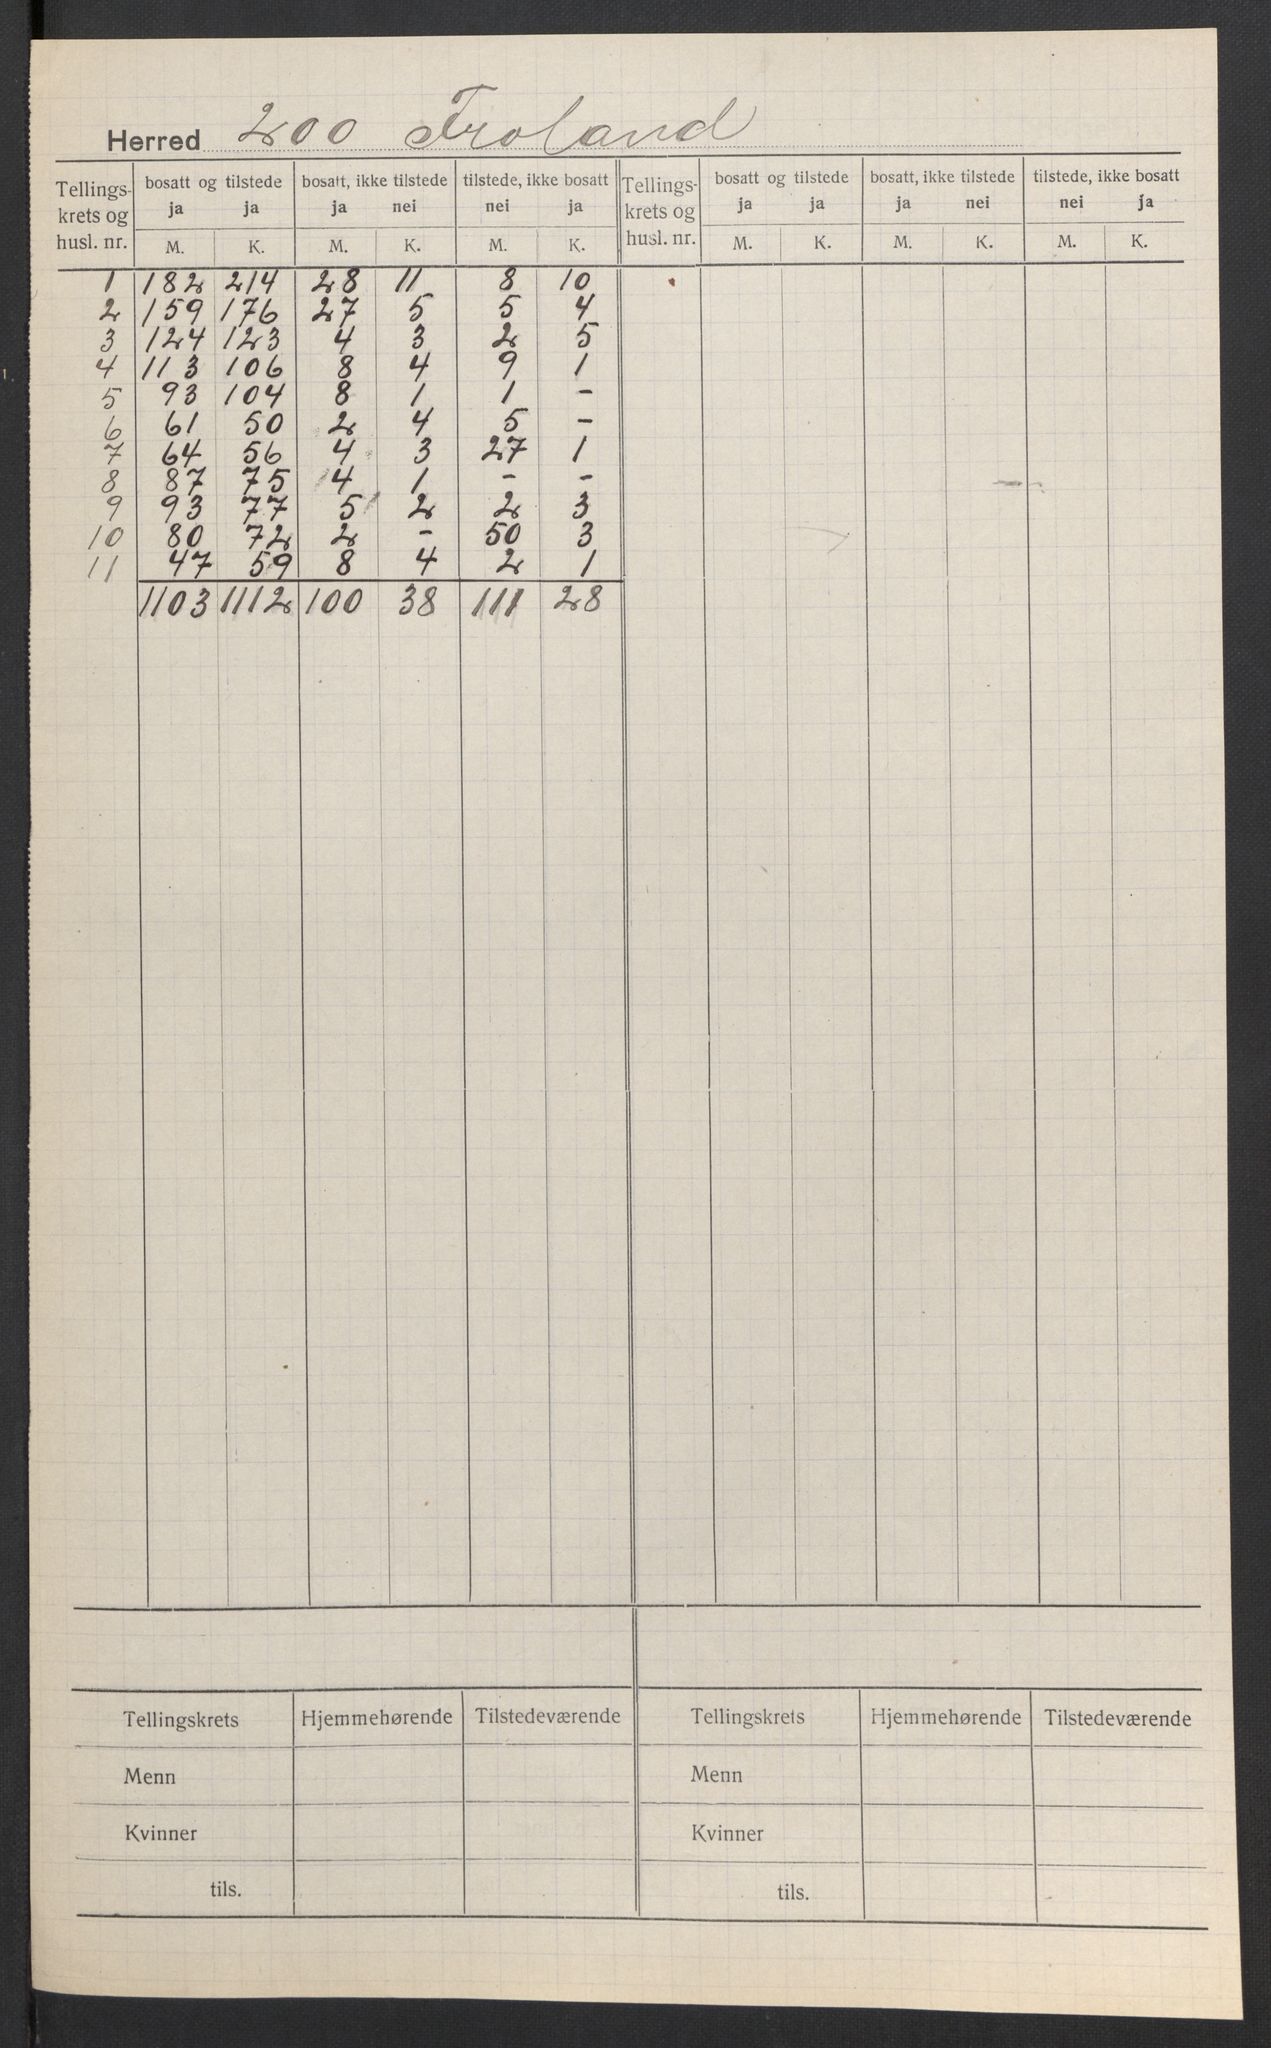 Herred 200 Froland
Tellings- krets og husl. nr. bosatt og tilstede bosatt, ikke tilstede tilstede, ikke bosatt Tellings- krets og husl. nr. bosatt og tilstede bosatt, ikke tilstede tilstede, ikke bosatt
ja ja ja nei nei ja ja ja ja nei nei ja
M. K. M. K. M. K. M. K. M. K. M. K.
1 182 214 28 11 8 10
2 159 176 27 5 5 4
3 124 123 4 3 2 5
4 113 106 8 4 9 1
5 93 104 8 1 1 -
6 61 50 2 4 5 -
7 64 56 4 3 27 1
8 87 75 4 1 - -
9 93 77 5 2 2 3
10 80 72 2 - 50 3
11 47 59 8 4 2 1
1103 1112 100 38 111 28
Tellingskrets Hjemmehørende Tilstedeværende Tellingskrets Hjemmehørende Tilstedeværende
Menn Menn
Kvinner Kvinner
tils. tils.